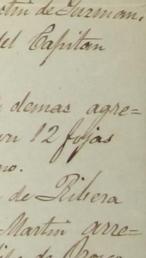 otin de Guzman,
del Capitan
demas agre=
on 12 fojas
mo.
de Ribera
Martin arre=